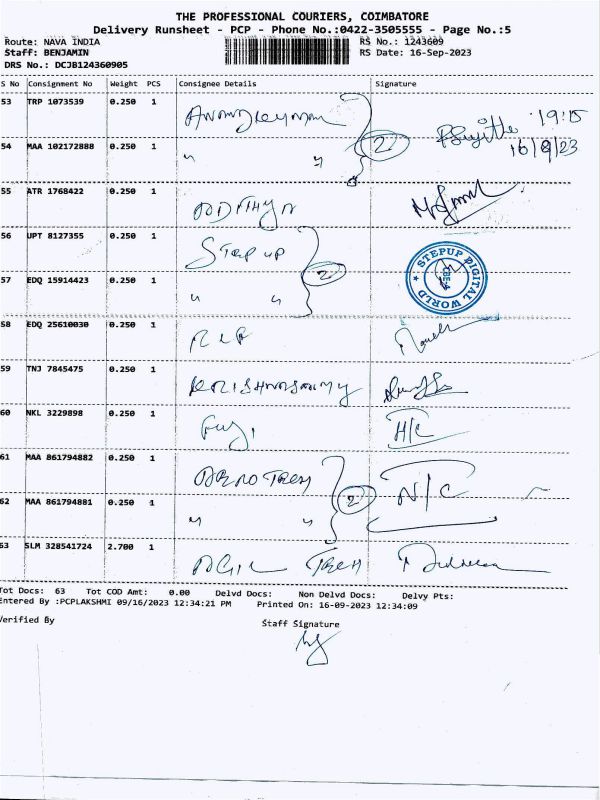 THE PROFESSIONAL COURIERS, COIMBATORE
Delivery Runsheet - PCP - Phone No.:0422-3505555 - Page No.:5
Route: NAVA INDIA RS No.: 1243609
Staff: BENJAMIN RS Date: 16-Sep-2023
DRS No.: DCJB124360905
S No Consignment No Weight PCS Consignee Details Signature
53 TRP 1073539 0.250 1 19:15
54 MAA 102172888 0.250 1 " " 2 16/9/23
55 ATR 1768422 0.250 1
56 UPT 8127355 0.250 1 Step up
STEPUP DIGITAL WORLD
57 EDQ 15914423 0.250 1 " " 2
58 EDQ 25610030 0.250 1
59 TNJ 7845475 0.250 1 KRISHNASAMY
60 NKL 3229898 0.250 1 H/C
61 MAA 861794882 0.250 1 N/C
62 MAA 861794881 0.250 1 " " 2
63 SLM 328541724 2.700 1
Tot Docs: 63 Tot COD Amt: 0.00 Delvd Docs: Non Delvd Docs: Delvy Pts:
Entered By :PCPLAKSHMI 09/16/2023 12:34:21 PM Printed On: 16-09-2023 12:34:09
Verified By Staff Signature